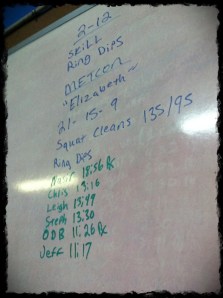 2-12
Skill
Ring Dips
METCON
"Elizabeth"
21-15-9
Squat Cleans 135/95
Ring Dips
18:56 Rx
Chris
Leigh 13:49
Steph 13:30
ODB 11:26 Rx
Jeff 11:17